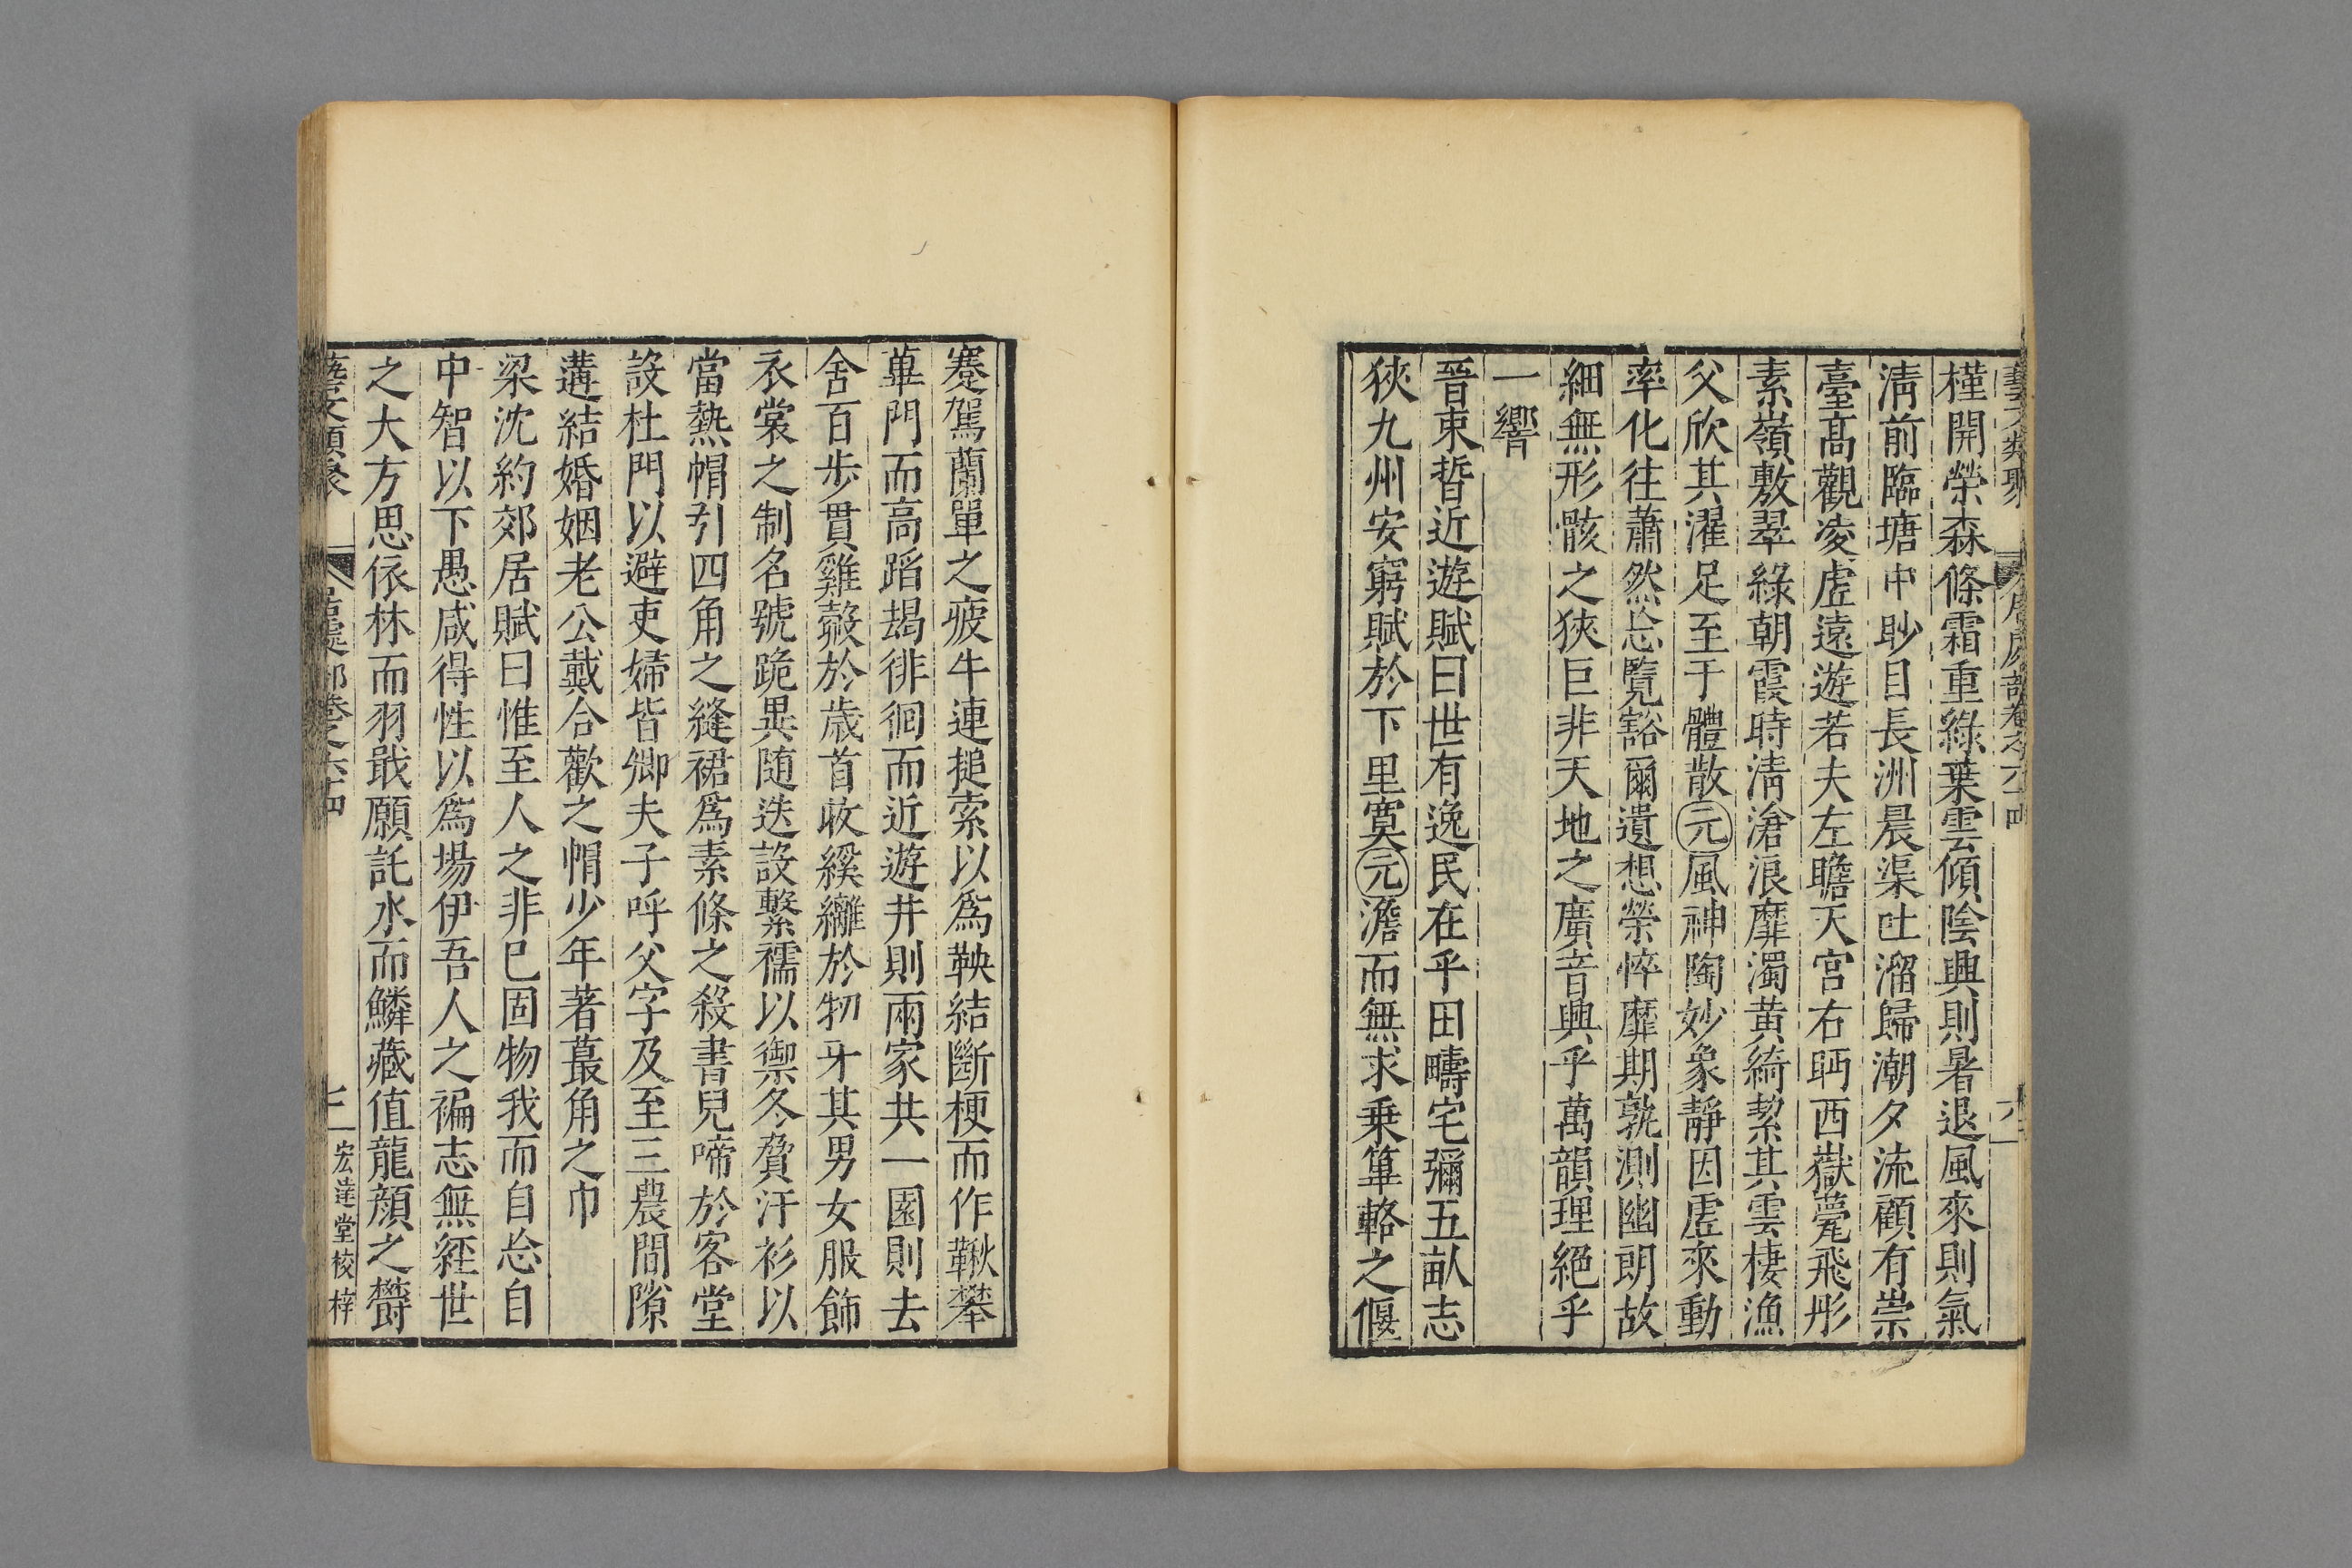 藝文類聚 居處部卷之六十四 六
槿開榮森條霜重綠葉雲傾陰興則暑退風來則氣
淸前臨塘中眇目長洲晨渠吐溜歸潮夕流顧有崇
臺高觀凌虛遠遊若夫左瞻天宮右眄西嶽甍飛彤
素嶺敷翠綠朝霞時淸滄浪靡濁黄綺絜其雲棲漁
父欣其濯足至于體散元風神陶妙象靜因虛來動
率化往蕭然忩覽豁爾遺想榮悴靡期孰測幽朗故
細無形骸之狹巨非天地之廣音興乎萬韻理絕乎
一響
晉束晳近遊賦曰世有逸民在乎田疇宅彌五畝志
狹九州安窮賦於下里寞元澹而無求乗篳輅之偃
蹇駕蘭單之疲牛連搥索以爲鞅結斷梗而作鞦攀
蓽門而高蹈朅徘徊而近遊井則兩家共一園則去
舍百步貫雞𣫍於歲首收縩纚於牣牙其男女服飾
衣裳之制名號詭異隨迭設繫襦以禦冬脅汗衫以
當熱帽引四角之縫裙爲素條之殺書兒啼於客堂
設杜門以避吏婦皆卿夫子呼父字及至三農間隙
遘結婚姻老公戴合歡之帽少年著蕞角之巾
梁沈約郊居賦曰惟至人之非已固物我而自忩自
中智以下愚咸得性以爲場伊吾人之褊志無經世
之大方思依林而羽戢願託水而鱗藏值龍顏之欝
藝文類聚 居處部卷之六十四 七 宏達堂校梓